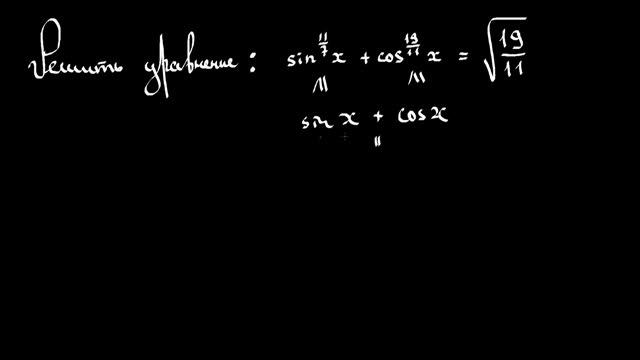 Решить уравнение: sin^{11/7} x + cos^{19/11} x = √(19/11)
sin x + cos x